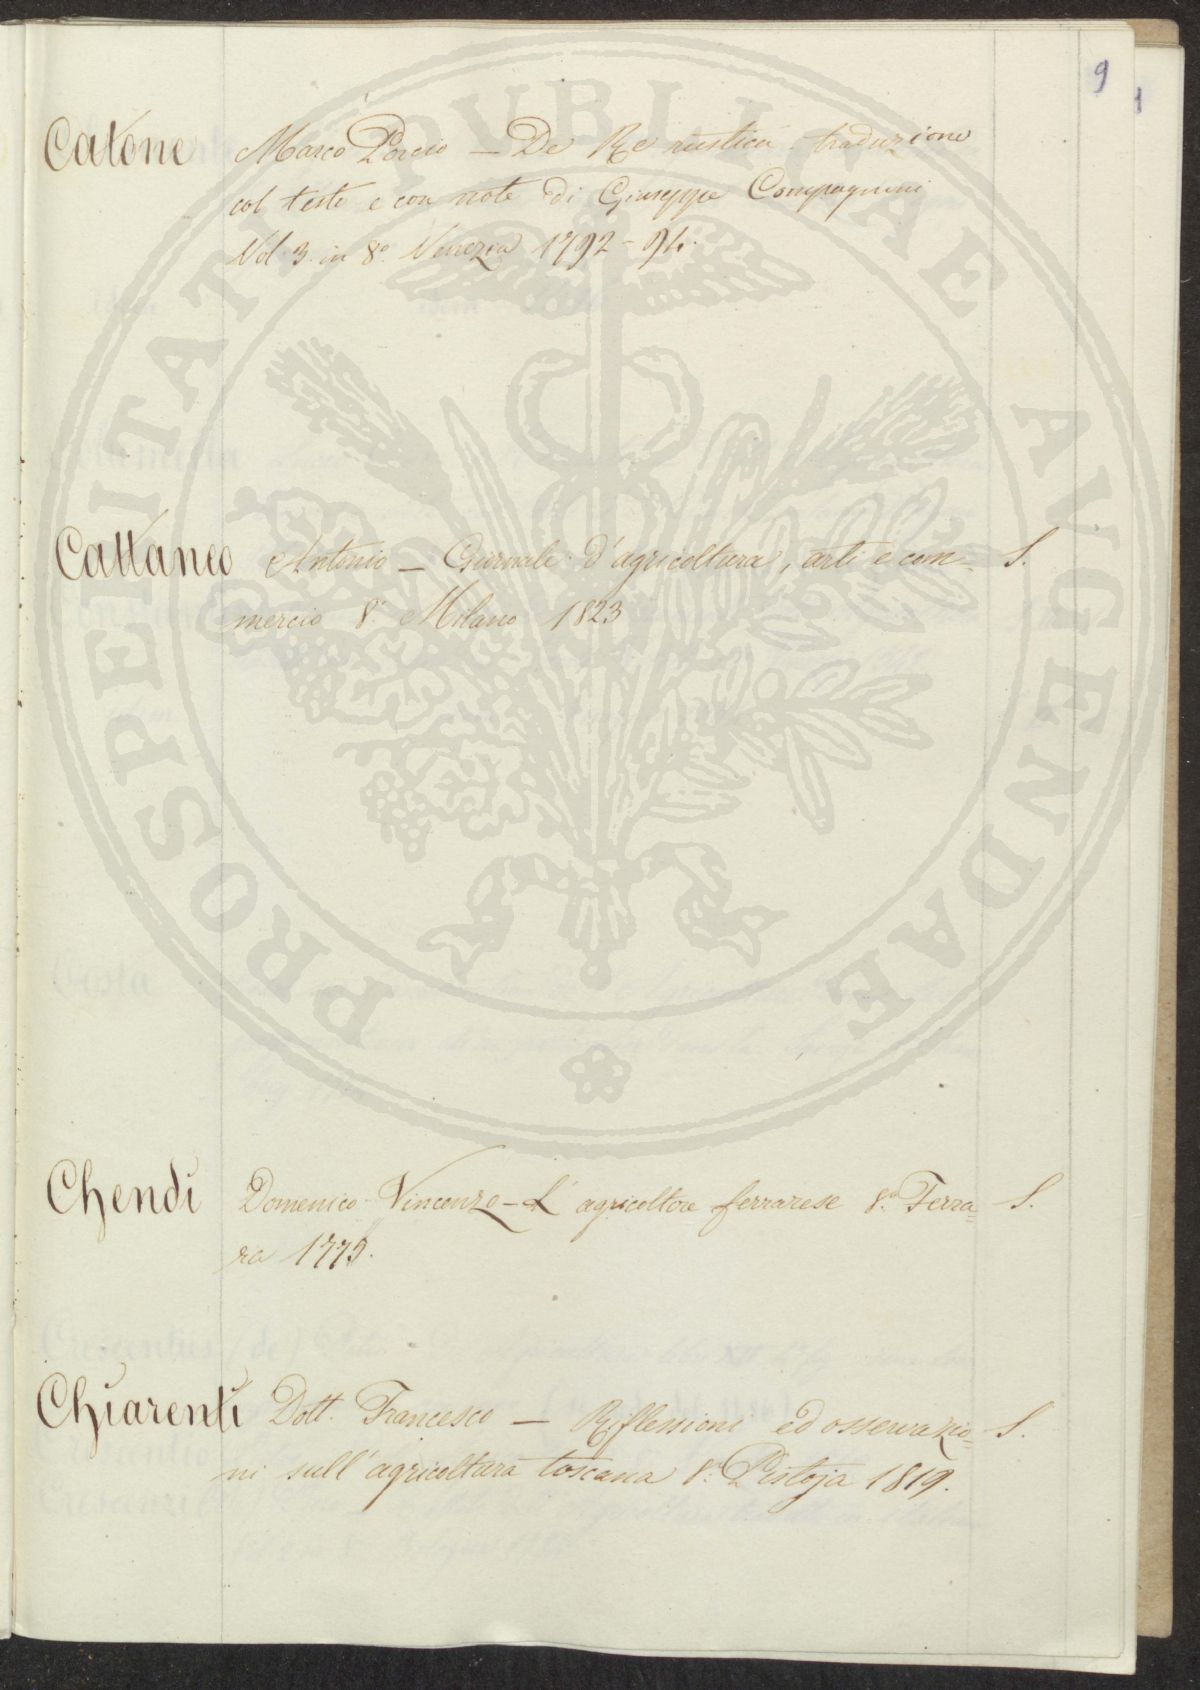 9
1
Catone Marco Porcio — De Re rustica traduzione
col testo e con note di Giuseppe Compagnoni
Vol 3. in 8.° Venezia 1792-94.
Cattaneo Antonio — Giornale d'agricoltura, arti e com= S.
mercio 8.° Milano 1823
Chendi Domenico Vincenzo — L'agricoltore ferrarese 8.° Ferra= S.
ra 1775.
Chiarenti Dott. Francesco — Riflessioni ed osservazio= S.
ni sull'agricoltura toscana 8.° Pistoja 1819.
PROSPERITATI PVBLICAE AVGENDAE